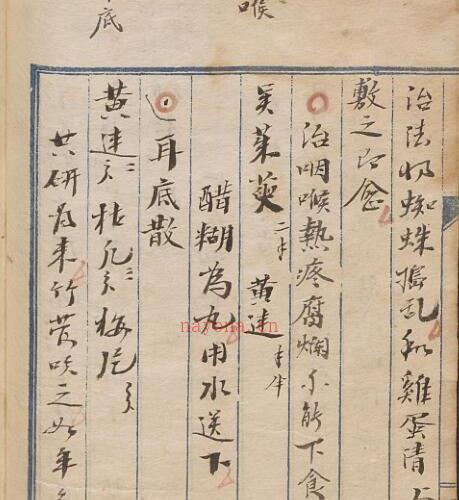 喉
底
治法將蜘蛛搗乱和雞蛋清
敷之即愈
治咽喉熱疼腐爛不能下食
吴茱萸 二 黄连
醋糊為丸用水送下
耳底散
黄連 枯凡 梅片
共研为末竹管吹之如年
nayona.cn